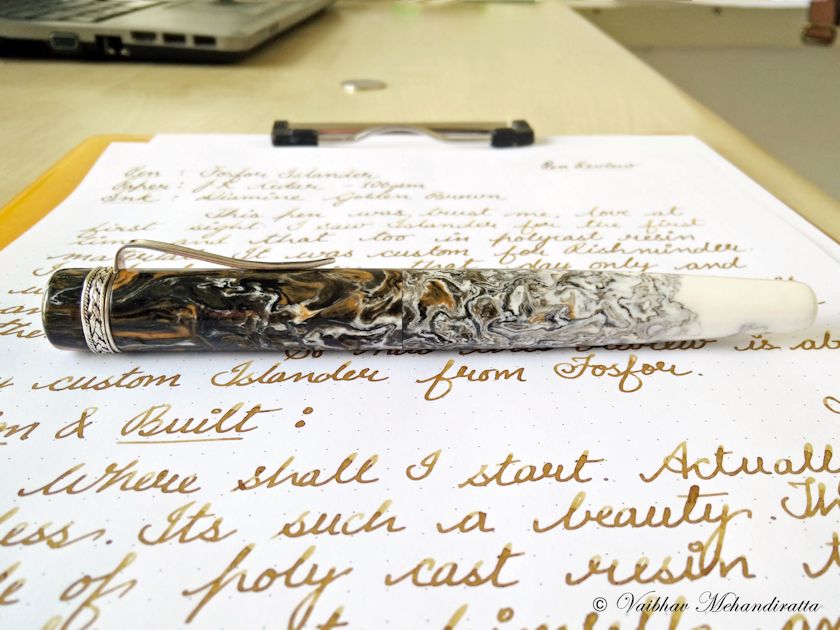 Pen Review
Pen : Fosfor Islander
Paper : J.K cedar - 100gsm
Ink : Diamine Golden Brown
This pen was trust me, love at
first sight. I saw Islander for the first
time and that too in polycast resin
material. It was custom for Rishmunder.
that day only and
So this
is ab
custom Islander from Fosfor.
& Built :
Where shall I start. Actuall
less. Its such a beauty. Th
of poly cast resin
himself
© Vaibhav Mehandiratta